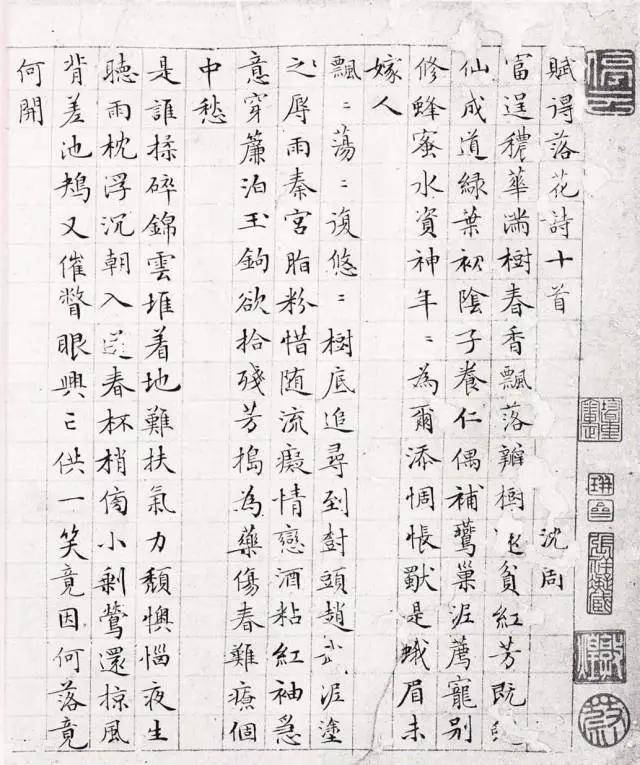 賦得落花詩十首 沈周
富逞穠華滿樹春香飄落瓣樹貧紅芳既
仙成道綠葉初陰子養仁偶補鶯巢泥薦寵別
修蜂蜜水資神年〻為爾添惆悵獃是蛾眉未
嫁人
飄〻蕩〻復悠〻樹底追尋到樹頭趙武泥塗
辱雨秦宮脂粉惜随流癡情戀酒粘紅袖急
意穿簾泊玉鉤欲拾殘芳搗為藥傷春難療個
中愁
是誰揉碎錦雲堆着地難扶氣力頹懊惱夜生
聽雨枕浮沉朝入送春杯梢傍小剩鶯還掠風
背差池鴂又催瞥眼興亡供一笑竟因何落竟
何開